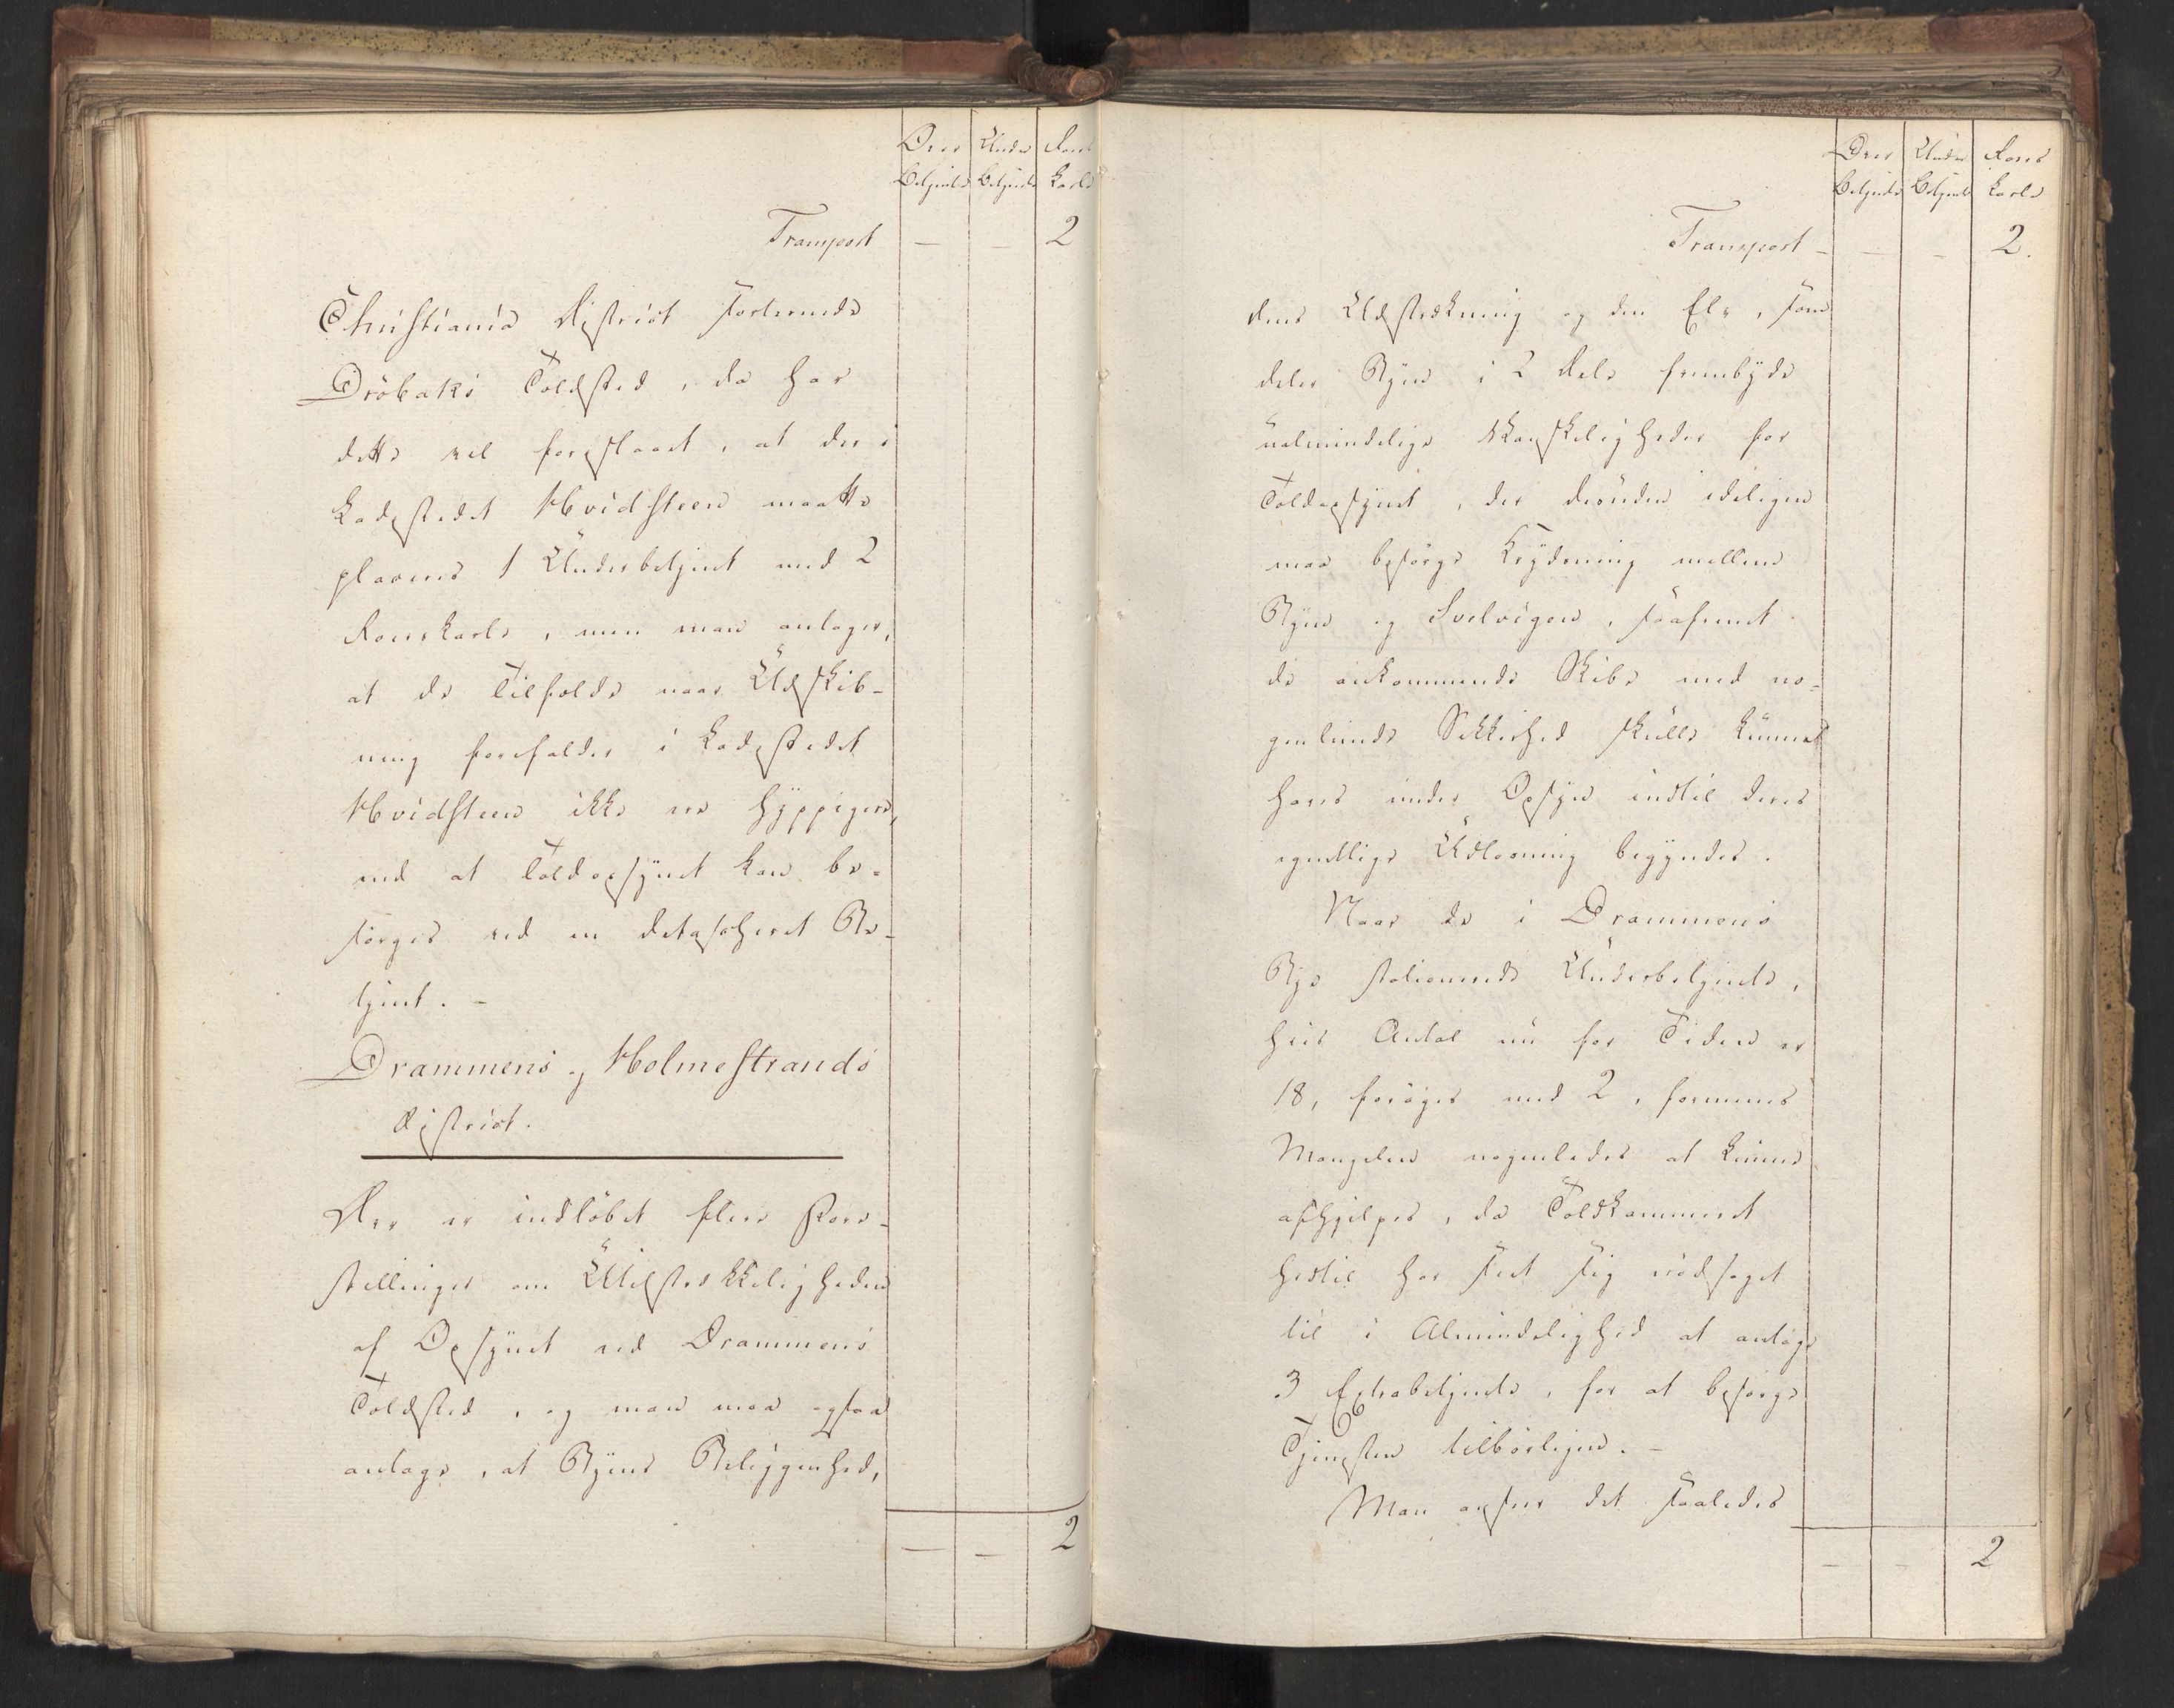 Over Under Roers
Betjente Betjente Karle
Transport — — 2
Christiania District sorterende
Dröbaks Toldsted, da har
dette vel foreslaaet, at der i
Ladestedet Hvidsteen maatte
placeres 1 Underbetjent med 2
Roerskarle, men man antager,
at de Tilfælde naar Udskib-
ning forefalder i Ladestedet
Hvidsteen ikke ere hyppigere,
end at Toldopsynet kan be-
sørges ved en detascheret Be-
tjent. –
Drammens og Holmestrands
District.
Der er indløbet flere Fore-
stillinger om Utilstrækkeligheden
af Opsynet ved Drammens
Toldsted, og man maa ogsaa
antage, at Byens Beliggenhed,
— — 2
Over Under Roers
Betjente Betjente Karle
Transport – — – 2.
dens Udstrækning og den Elv, som
deler Byen i 2 Dele frembyde
ualmindelige Vanskeligheder for
Toldopsynet, der desuden ideligen
maa besørge Krydsning mellem
Byen og Svelvigen, saafremt
de ankommende Skibe med no-
genlunde Sikkerhed skulle kunne
haves under Opsyn indtil deres
egentlige Udlosning begyndes.
Naar de i Drammens
Bye stationerede Underbetjente,
hvis Antal nu for Tiden er
18, forøges med 2, formenes
Mangelen nogenledes at kunne
afhjelpes, da Toldkammeret
hertil har seet sig nødsaget
til i Almindelighed at antage
3 Extrabetjente, for at besørge
Tjenesten tilbørligen. –
Man anseer det saaledes
— – 2